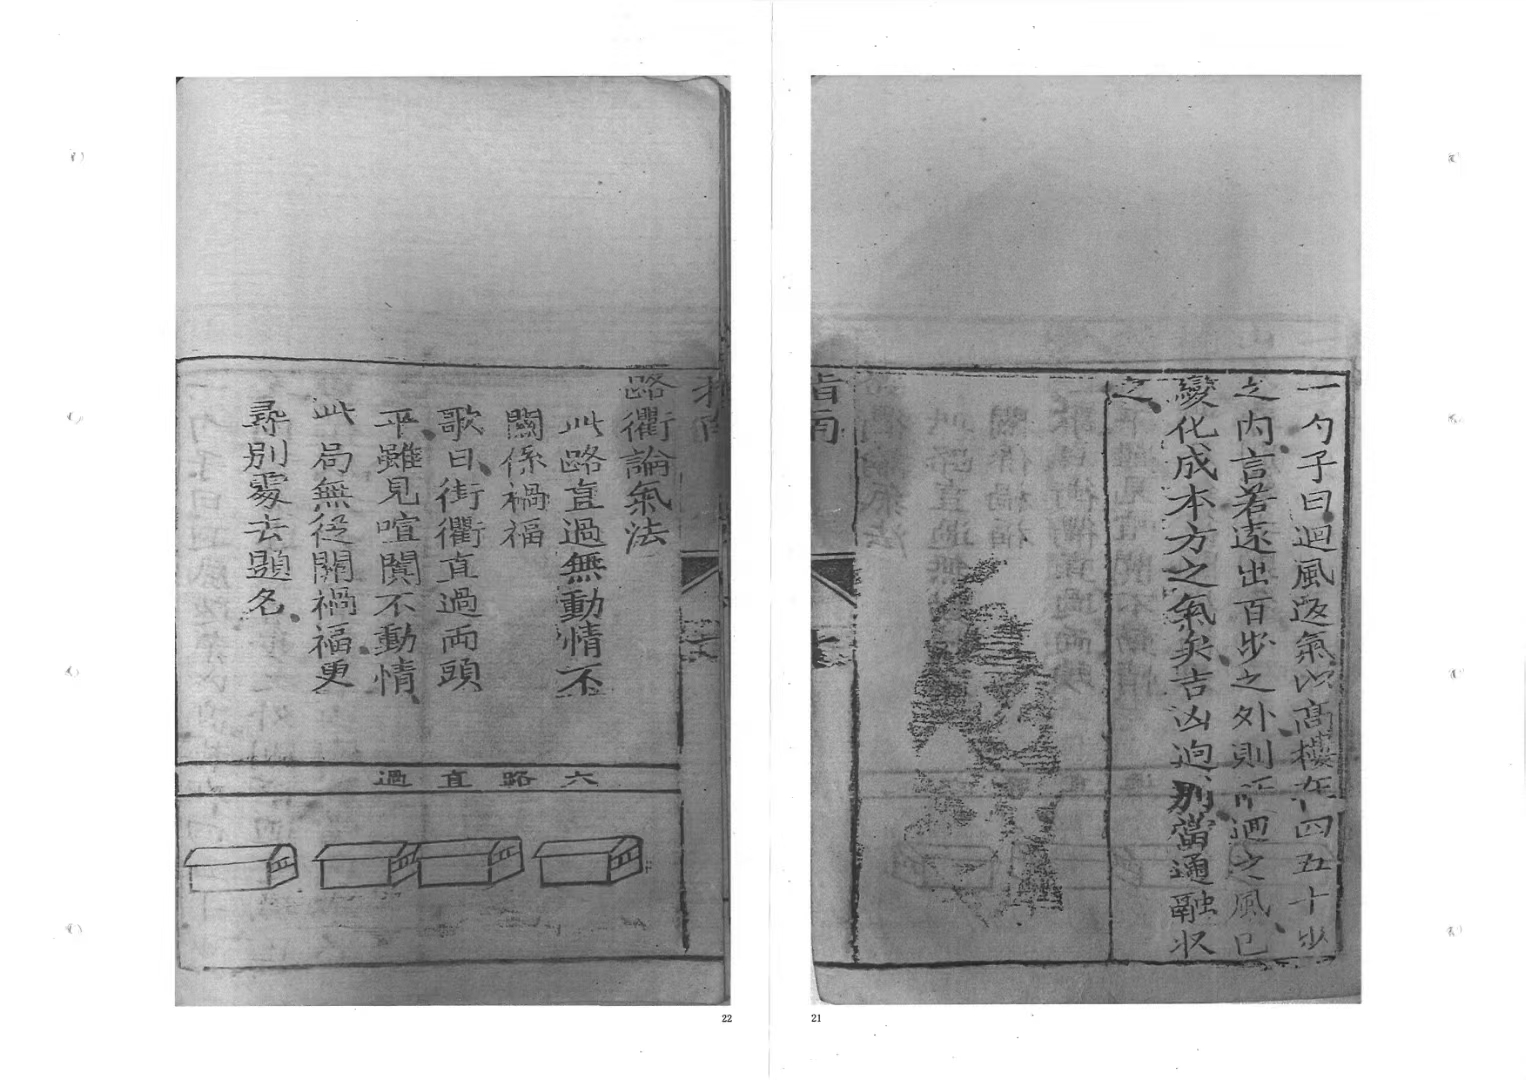 一勺子曰迴風返氣以高樓在四五十步
之内言若遠出百步之外則所迴之風已
變化成本方之氣矣吉凶迥別當通融收
之
指南
21
路衢論氣法
此路直過無動情不
關係禍福
歌曰街衢直過兩頭
平雖見喧闐不動情
此局無從關禍福更
尋別處去題名
六路直過
22